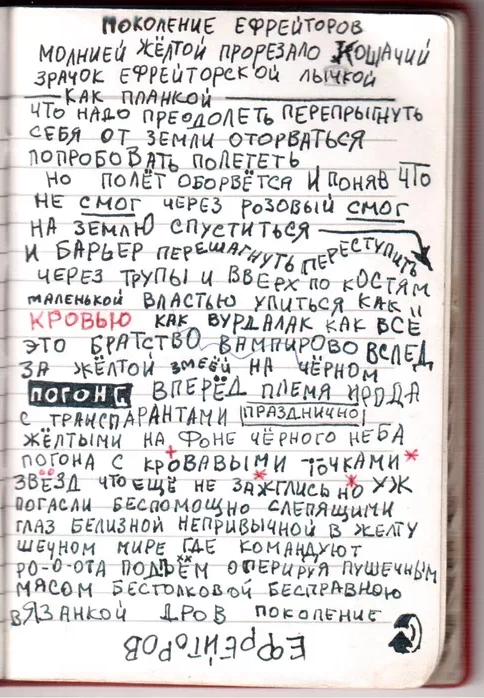 ПОКОЛЕНИЕ ЕФРЕЙТОРОВ
МОЛНИЕЙ ЖЁЛТОЙ ПРОРЕЗАЛО КОШАЧИЙ
ЗРАЧОК ЕФРЕЙТОРСКОЙ ЛЫЧКОЙ
КАК ПЛАНКОЙ
ЧТО НАДО ПРЕОДОЛЕТЬ ПЕРЕПРЫГНУТЬ
СЕБЯ ОТ ЗЕМЛИ ОТОРВАТЬСЯ
ПОПРОБОВАТЬ ПОЛЕТЕТЬ
НО ПОЛЁТ ОБОРВЁТСЯ И ПОНЯВ ЧТО
НЕ СМОГ ЧЕРЕЗ РОЗОВЫЙ СМОГ
НА ЗЕМЛЮ СПУСТИТЬСЯ
И БАРЬЕР ПЕРЕШАГНУТЬ ПЕРЕСТУПИТЬ
ЧЕРЕЗ ТРУПЫ И ВВЕРХ ПО КОСТЯМ
МАЛЕНЬКОЙ ВЛАСТЬЮ УПИТЬСЯ КАК
КРОВЬЮ КАК ВУРДАЛАК КАК ВСЁ
ЭТО БРАТСТВО ВАМПИРОВО ВСЛЕД
ЗА ЖЁЛТОЙ ЗМЕЁЙ НА ЧЁРНОМ
ПОГОНЕ ВПЕРЁД ПЛЕМЯ ИРОДА
С ТРАНСПАРАНТАМИ ПРАЗДНИЧНО
ЖЁЛТЫМИ НА ФОНЕ ЧЁРНОГО НЕБА
ПОГОНА С КРОВАВЫМИ ТОЧКАМИ
ЗВЁЗД ЧТО ЕЩЁ НЕ ЗАЖГЛИСЬ НО УЖ
ПОГАСЛИ БЕСПОМОЩНО СЛЕПЯЩИМИ
ГЛАЗ БЕЛИЗНОЙ НЕПРИВЫЧНОЙ В ЖЕЛТУ
ШЕЧНОМ МИРЕ ГДЕ КОМАНДУЮТ
РО-О-ОТА ПОДЪЁМ ОПЕРИРУЯ ПУШЕЧНЫМ
МЯСОМ БЕСТОЛКОВОЙ БЕСПРАВНОЮ
ВЯЗАНКОЙ ДРОВ ПОКОЛЕНИЕ
ЕФРЕЙТОРОВ